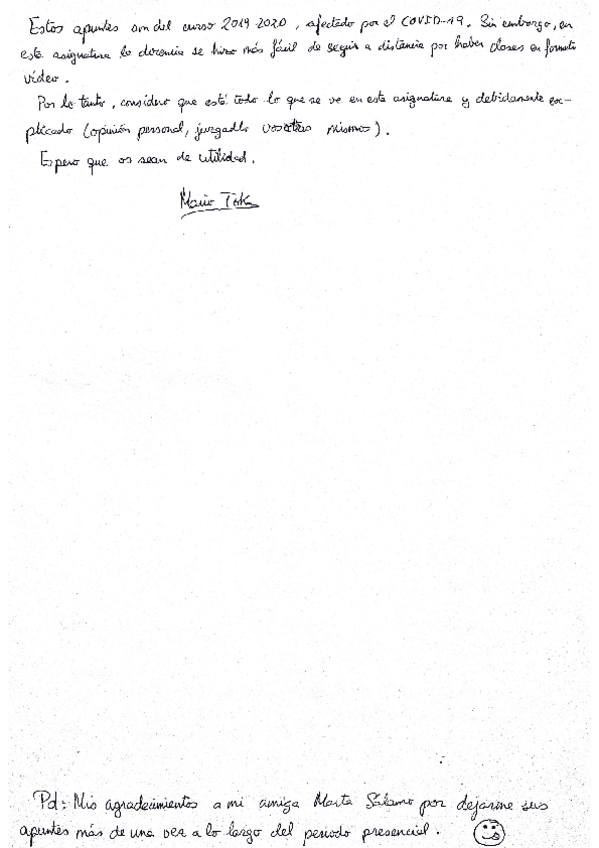 Estos apuntes son del curso 2019-2020, afectado por el COVID-19. Sin embargo, en
esta asignatura la docencia se hizo más fácil de seguir a distancia por haber clases en formato
vídeo.
Por lo tanto, considero que está todo lo que se ve en esta asignatura y debidamente ex-
plicado (opinión personal, juzgadlo vosotros mismos).
Espero que os sean de utilidad.
Mario
Pd: Mis agradecimientos a mi amiga Marta Sálamo por dejarme sus
apuntes más de una vez a lo largo del periodo presencial.